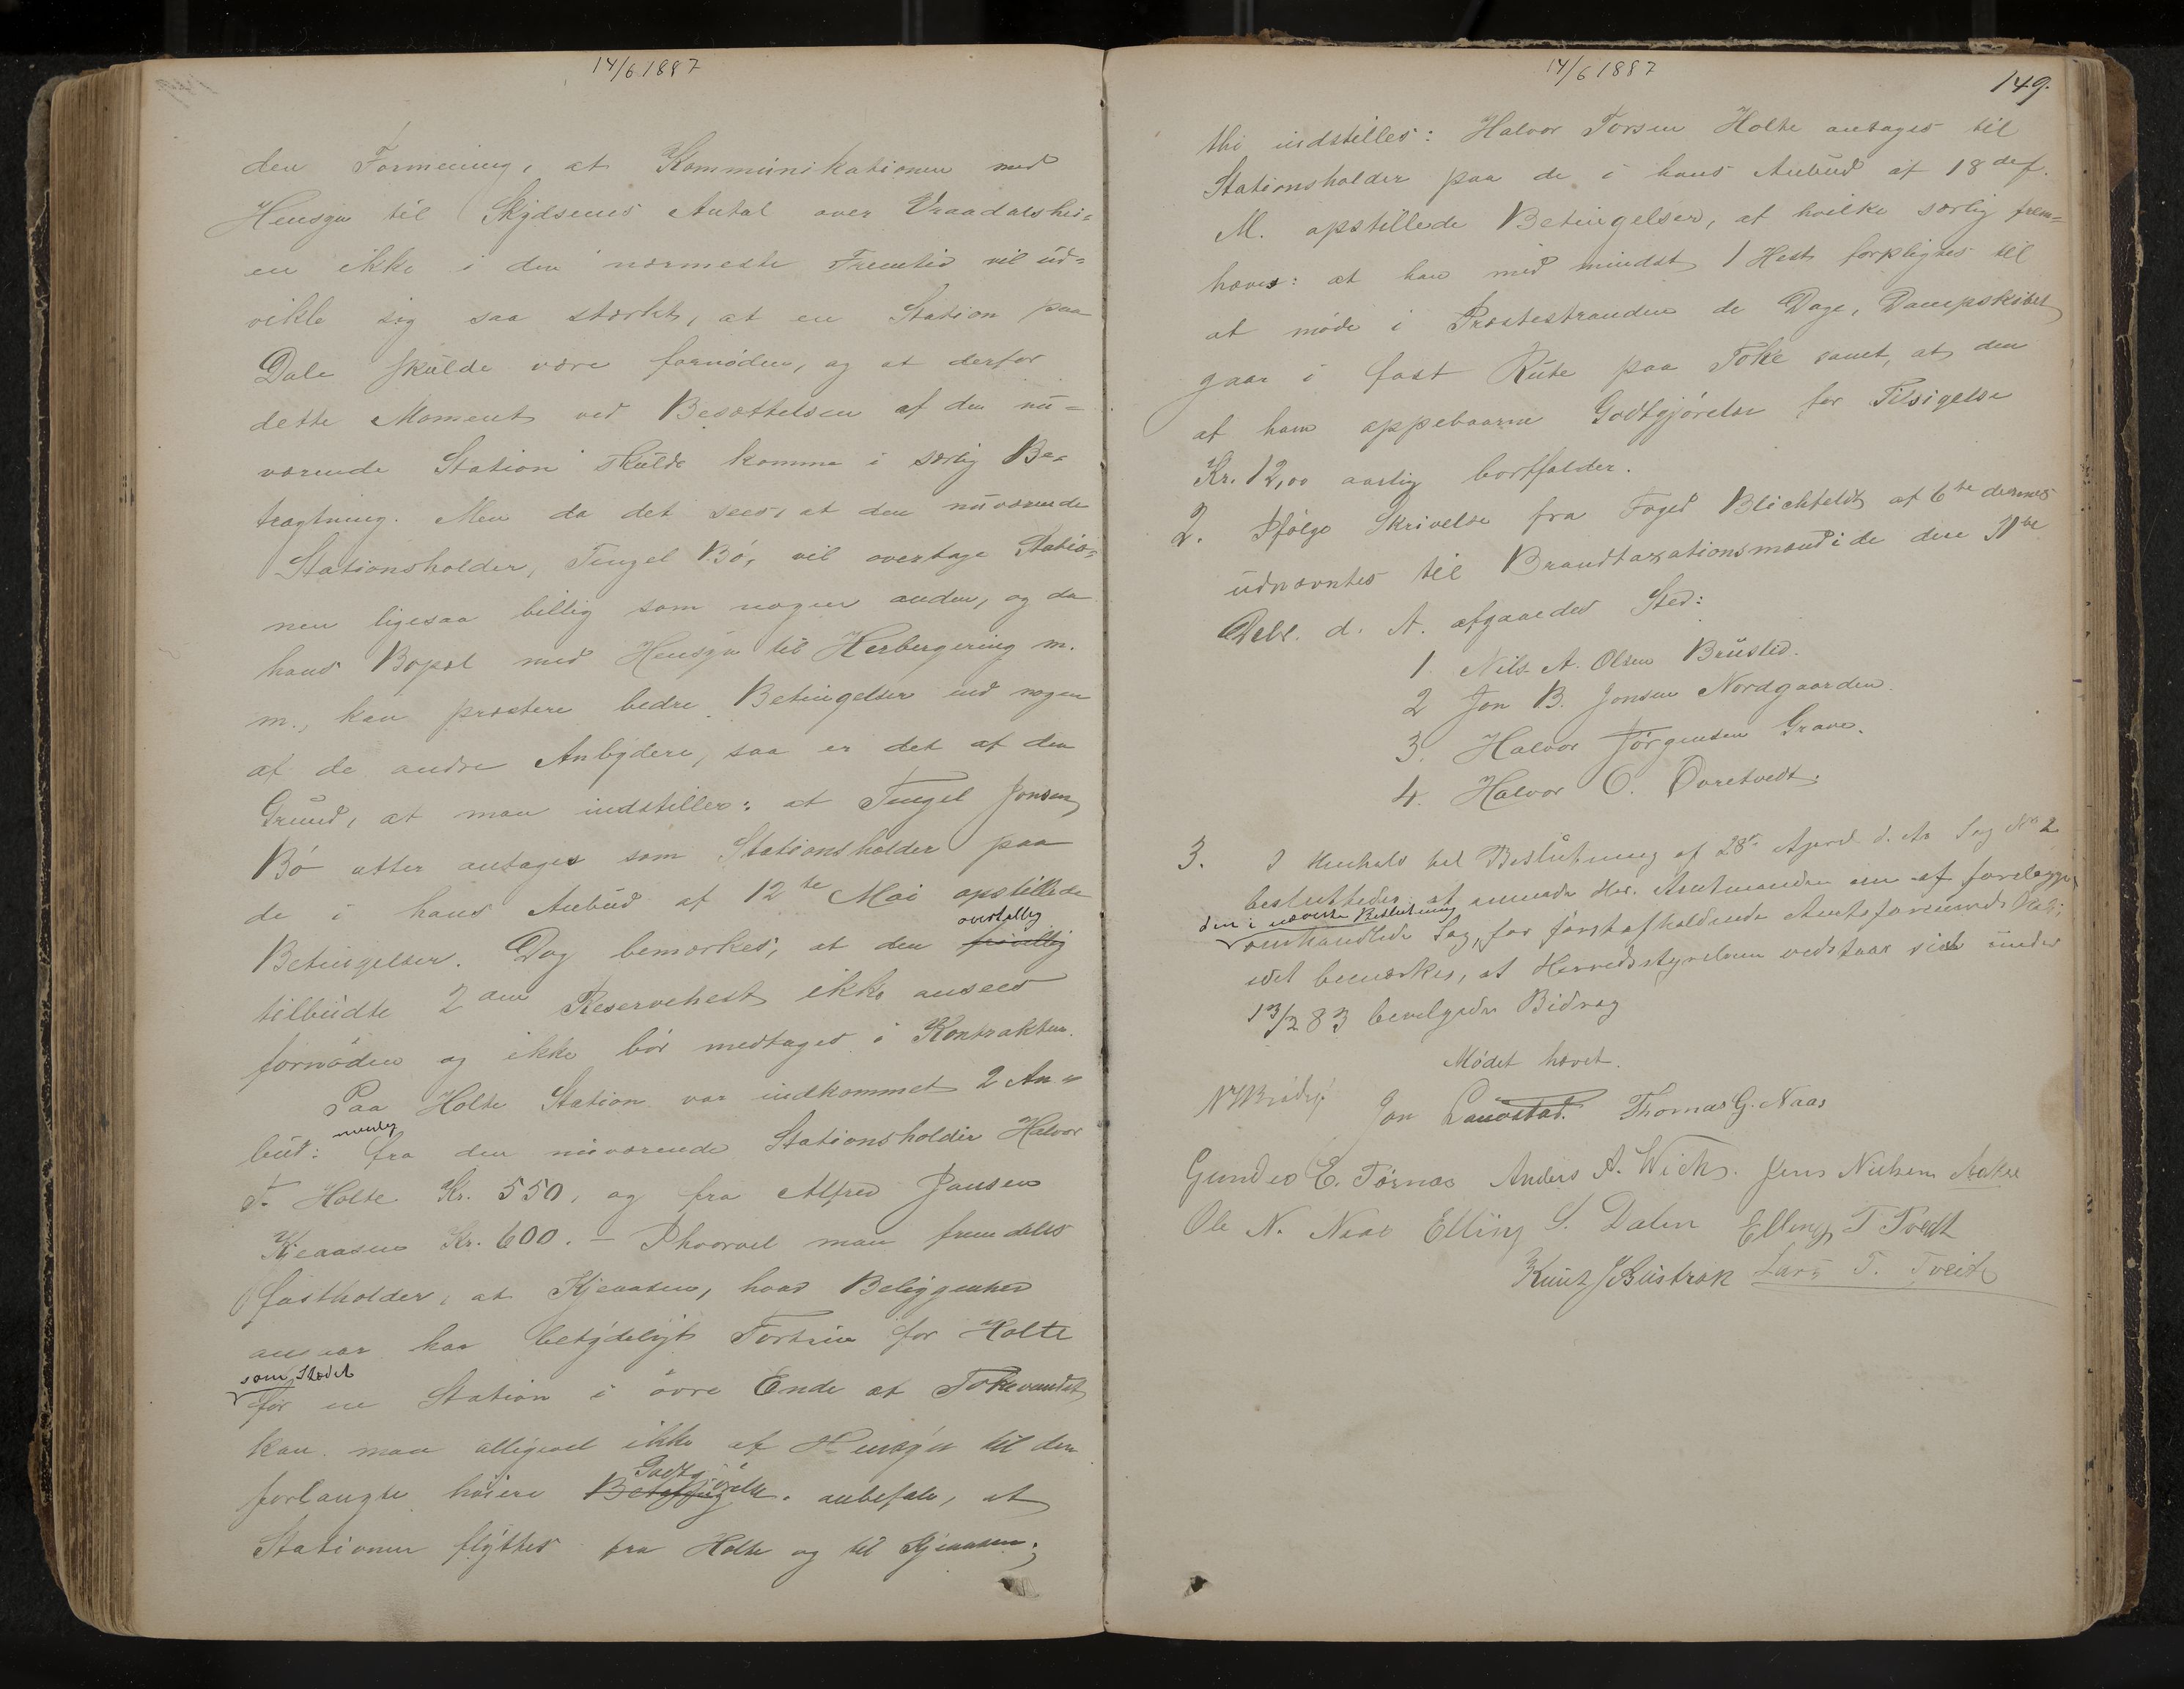 14/6 1887
den Formening, at Kommunikationen med
Hensyn til Skydsenes Antal over Vraadalshei=
en ikke i den nærmeste Fremtid vil ud=
vikle sig saa stærkt, at en Station paa
Dale skulde være fornøden, og at derfor
dette Moment ved Besættelsen af den nu=
værende Station skulde komme i særlig Be=
tragtning. Men da det sees, at den nuværende
Stationsholder, Tengel Bø, vil overtage Statio=
nen ligesaa billig som nogen anden, og da
hans Bopæl med Hensyn til Herbergering m.
m., kan præstere bedre Betingelser end nogen
af de andre Anbydere, saa er det af den
Grund, at man indstiller: at Tengel Jonsen
Bø atter antages som Stationsholder paa
de i hans Anbud af 12te Mai opstillede
Betingelser. Dog bemærkes, at den overtallig
tilbudte 2den Reservehest ikke ansees
fornøden og ikke bør medtages i Kontrakten.
Paa Holte Station var indkommet 2 An=
bud: nemlig fra den nuværende Stationsholder Halvor
T. Holte Kr. 550, og fra Alfred Jansen
Kjeaasen Kr. 600. – Ihvorvel man fremdeles
fastholder, at Kjeaasen, hvad Beliggenhed
angaar har betydeligt Fortrin for Holte
som Sted
for en Station i øvre Ende af Tokevandet
kan man alligevel ikke af Hensyn til den
forlangte høiere Betaling Godtgjørelse anbefale, at
Stationen flyttes fra Holte og til Kjeaasen;
14/6 1887
149.
thi indstilles: Halvor Torsen Holte antages til
Stationsholder paa de i hans Anbud af 18 ds.
M. opstillede Betingelser, af hvilke særlig frem=
hæves: at han med mindst 1 Hest forpligtes til
at møde i Præstestranden de Dage, Dampskibet
gaar i fast Rute paa Toke samt, at den
af ham oppebaarne Godtgjørelse for Tilsigelse
Kr. 12,00 aarlig bortfalder.
2. Ifølge Skrivelse fra Foged Blichfeldt af 6te dennes
udnævntes til Brandtaxationsmænd i de den 11te
Debr. d. A. afgaaedes Sted:
1. Nils A. Olsen Brusted.
2 Jon B. Jonsen Nordgaarden.
3. Halvor Jørgensen Grave.
4. Halvor O. Øvretvedt.
3. I Henhold til Beslutning af 28de April d. A. Sag No 2
besluttedes at anmode Hr. Amtmanden om at forelægge
den i nævnte Beslutning
omhandlede Sag, for førstafholdende Amtsformandskab;
idet bemærkes, at Herredsstyrelsen vedstaar sit under
13/2 83 bevilgede Bidrag
Mødet hævet.
Jon Landstad. Thomas G. Naas
Gunder E. Tørnæs Anders A. Wiche. Jens Nielsen Aakre
Ole N. Næs Elling S. Dalen Elling T Tvedt
Knut J Bustrak Lars T. Tveit